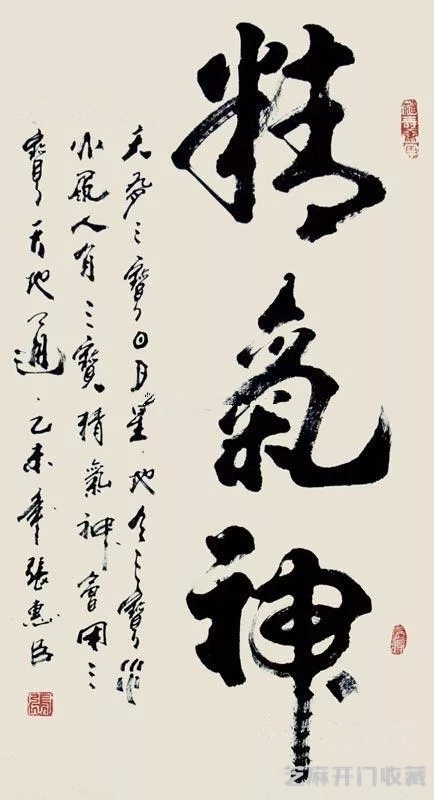 精氣神
天有三寶日月星地有三寶水
火風人有三寶精氣神會用三
寶天地通乙未年張惠臣
芝麻开门收藏